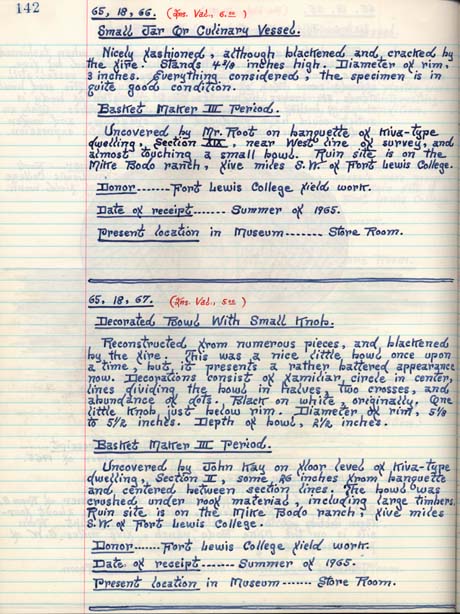 142
65, 18, 66. (Ins. Val., 6.00)
Small Jar Or Culinary Vessel.
Nicely fashioned, although blackened and cracked by
the fire. Stands 4 3/8 inches high. Diameter of rim,
3 inches. Everything considered, the specimen is in
quite good condition.
Basket Maker III Period.
Uncovered by Mr. Root on banquette of Kiva-type
dwelling, Section XIX, near West line of survey, and
almost touching a small bowl. Ruin site is on the
Mike Bodo ranch, five miles S.W. of Fort Lewis College.
Donor.......Fort Lewis College field work.
Date of receipt....... Summer of 1965.
Present location in Museum------- Store Room.
65, 18, 67. (Ins. Val., 5.00)
Decorated Bowl With Small Knob.
Reconstructed from numerous pieces, and blackened
by the fire. This was a nice little bowl once upon
a time, but it presents a rather battered appearance
now. Decorations consist of familiar circle in center,
lines dividing the bowl in halves, two crosses, and
abundance of dots. Black on white, originally. One
little knob just below rim. Diameter of rim, 5 1/8
to 5 1/2 inches. Depth of bowl, 2 1/2 inches.
Basket Maker III Period.
Uncovered by John Kay on floor level of Kiva-type
dwelling, Section II, some 26 inches from banquette
and centered between section lines. The bowl was
crushed under roof material, including large timbers.
Ruin site is on the Mike Bodo ranch, five miles
S.W. of Fort Lewis College.
Donor......Fort Lewis College field work.
Date of receipt-------Summer of 1965.
Present location in Museum ------- Store Room.